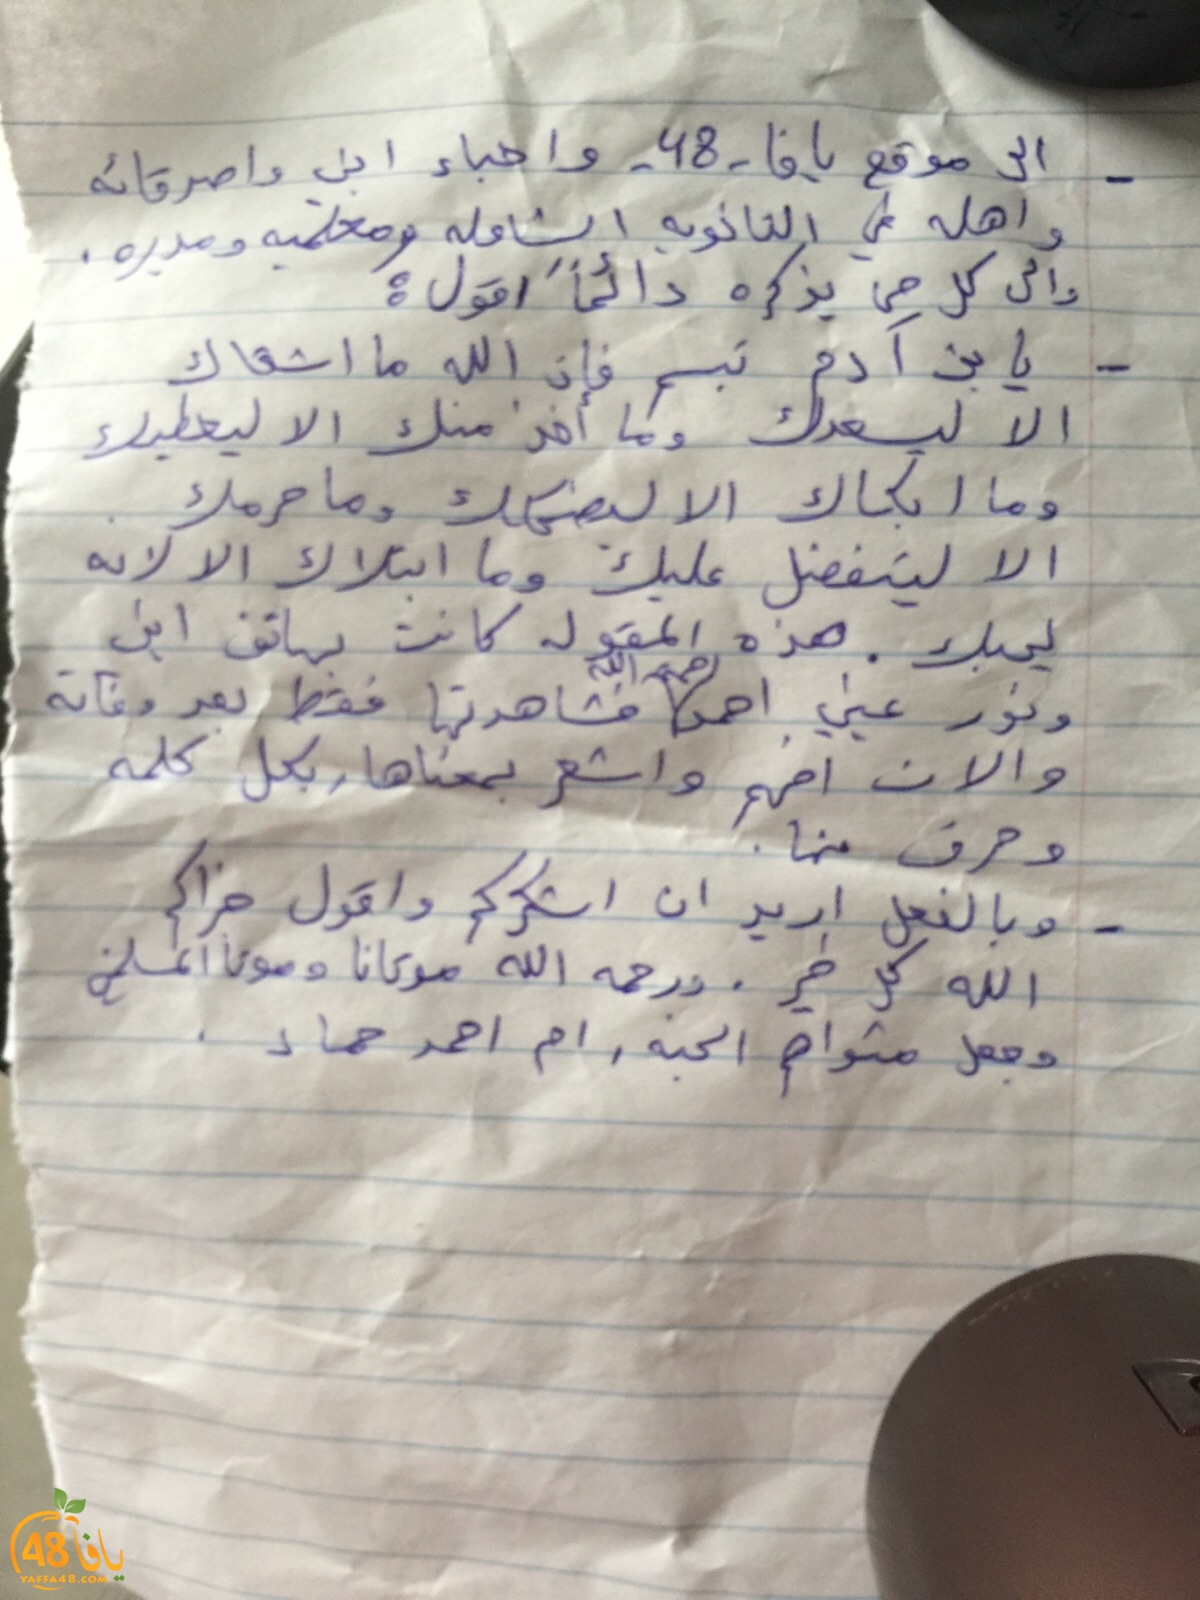 - الى موقع يافا -48- واحباء ابني واصدقائه
واهله في الثانويه الشامله ومعلميه ومديره .
والى كل من يذكره دائماً اقول :
- يا بن آدم تبسم فإن الله ما اشقاك
الا ليسعدك وما أخذ منك الا ليعطيك
وما ابكاك الا ليضحكك وما حرمك
الا ليتفضل عليك وما ابتلاك الا لانه
يحبك . هذه المقوله كانت بهاتف ابني
ونور عيني احمد رحمه الله فشاهدتها فقط بعد وفاته
والان افهم واشعر بمعناها, بكل كلمه
وحرف منها .
- وبالفعل اريد ان اشكركم واقول جزاكم
الله كل خير . ورحمه الله موتانا وموتا المسلمين
وجعل مثواهم الجنه , ام احمد حماد .
يافا 48
YAFFA48.COM